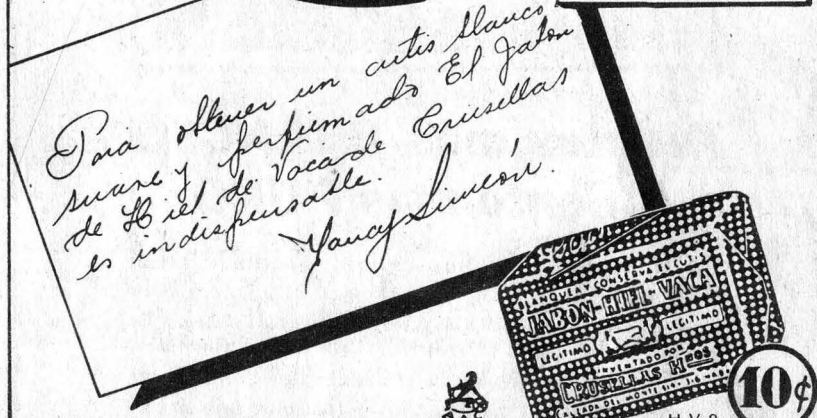 Para obtener un cutis blanco,
suave y perfumado El Jabón
de Hiel de Vaca de Crusellas
es indispensable.
Simeón.
BLANQUEA Y CONSERVA EL CUTIS
JABON HIEL-VACA
LEGITIMO LEGITIMO
INVENTADO POR
CRUSELLAS Hnos
CALZADA DEL MONTE
10¢
H.V.2